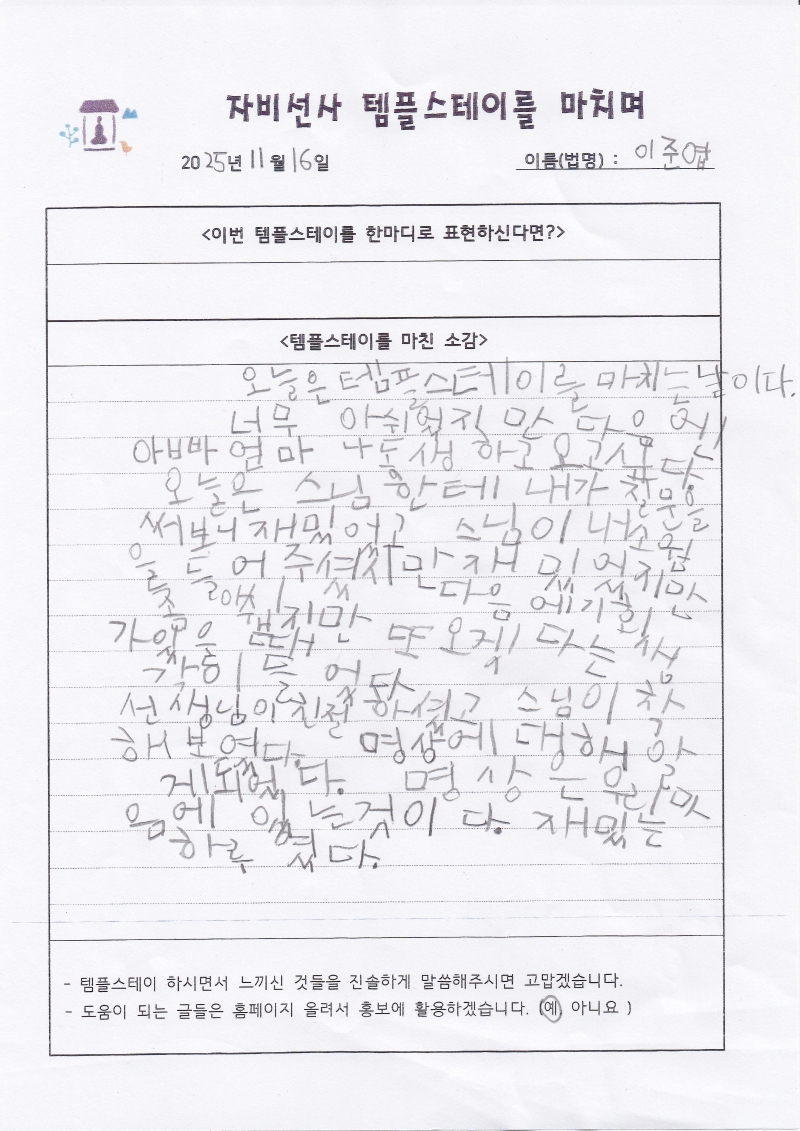 자비선사 템플스테이를 마치며
2025년 11월 16일 이름(법명) : 이준엽
<이번 템플스테이를 한마디로 표현하신다면?>
<템플스테이를 마친 소감>
오늘은 템플스테이를 마치는 날이다.
너무 아쉬웠지만 다음에
아빠 엄마 동생 하고 오고싶다.
오늘은 스님 한테 내가 질문을
써보니 재밌었고 스님이 내 소원
을 들어 주셨지만 재밌었지만
다음에 기회
가 있을 때 또 오겠다는 생
각이 들었다
선생님이 친절 하셨고 스님이 착
해 보였다. 명상에 대해 알
게되었다. 명상은 우리 마
음에 있는것이다. 재밌는
하루 였다.
- 템플스테이 하시면서 느끼신 것들을 진솔하게 말씀해주시면 고맙겠습니다.
- 도움이 되는 글들은 홈페이지 올려서 홍보에 활용하겠습니다. (예, 아니요 )